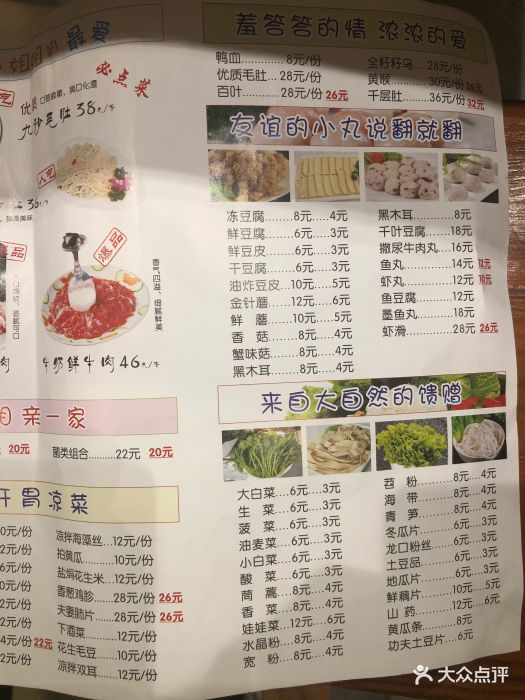 姐姐的最爱
必点菜
优质 口感鲜嫩，爽口化渣
九秒毛肚 38元/半
人气
36元/
弹滑美味
爆品
香气四溢、细腻鲜美
牛奶鲜牛肉 46元/半
亲一家
20元 20元 菌类组合......22元 20元
开胃凉菜
凉拌海藻丝...12元/份
拍黄瓜.........10元/份
盐焗花生米...12元/份
香葱鸡胗......28元/份 26元
夫妻肺片......28元/份 26元
下酒菜.........12元/份
22元 花生毛豆......10元/份
凉拌双耳......12元/份
羞答答的情 浓浓的爱
鸭血............8元/份
优质毛肚...28元/份
百叶............28元/份 26元
全籽籽乌...28元/份
黄喉............30元/份 26元
千层肚......36元/份 32元
友谊的小丸说翻就翻
冻豆腐.........8元....4元
鲜豆腐.........6元....3元
鲜豆皮.........8元....4元
干豆腐.........6元....3元
油炸豆皮......10元....5元
金针蘑.........12元....6元
鲜蘑............10元....5元
香菇............8元....4元
蟹味菇.........8元....4元
黑木耳.........8元....4元
黑木耳............8元
千叶豆腐.........18元
撒尿牛肉丸......16元
鱼丸...............14元 12元
虾丸...............12元 10元
鱼豆腐............12元
墨鱼丸............18元
虾滑...............28元 26元
来自大自然的馈赠
大白菜......6元....3元
生菜.........6元....3元
菠菜.........6元....3元
油麦菜......6元....3元
小白菜......6元....3元
酸菜.........6元....3元
茼蒿.........6元....3元
香菜.........8元....4元
娃娃菜......12元....6元
水晶粉......8元....4元
宽粉.........8元....4元
苕粉.........8元....4元
海带.........8元....4元
青笋.........8元....4元
冬瓜片......6元....3元
龙口粉丝...6元....3元
土豆品......6元....3元
地瓜片......6元....3元
鲜藕片......10元....5元
山药.........12元....6元
黄瓜条......8元....4元
功夫土豆片...6元....3元
大众点评